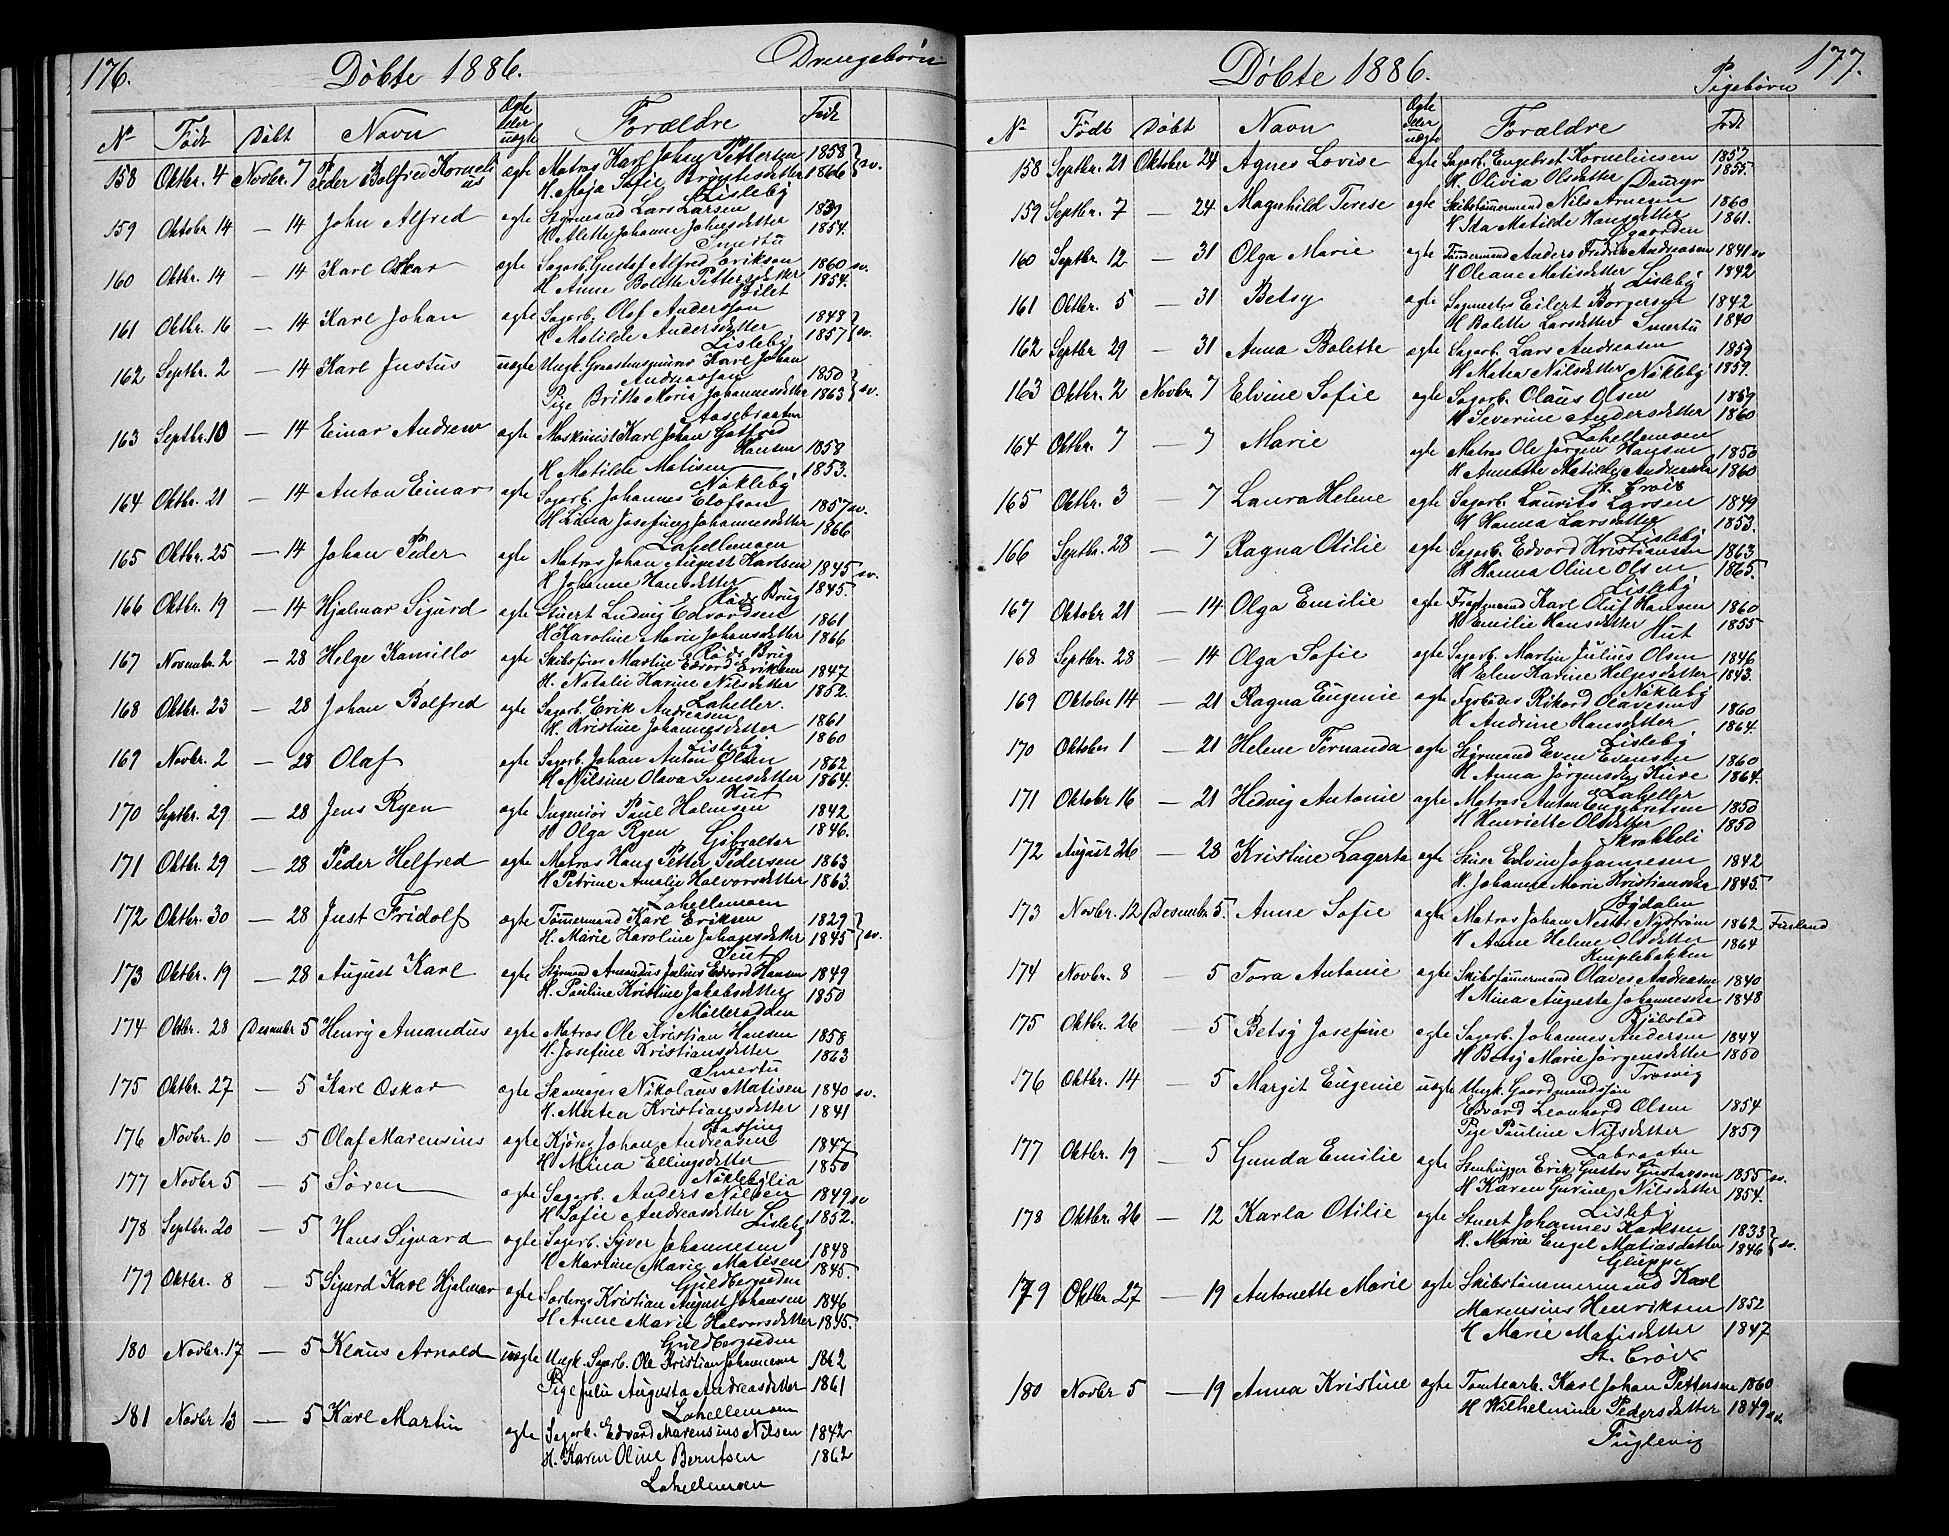 176.
Døbte 1886.
Drengebørn
No Født Døbt Navn Ægte eller uægte Forældre Født
158 Oktbr. 4 Novbr. 7 Peder Bolfred Kornelius ægte Matros Karl Johan Pettersen 1858 sv.
H. Maja Sofie Bryntesdatter 1866
Lisleby
159 Oktobr 14 — 14 John Alfred ægte Styrmand Lars Larsen 1839
H. Alette Johanne Johnsdatter 1854.
Smertu
160 Oktbr. 14 — 14 Karl Oskar ægte Sagarb. Gustaf Alfred Erikson 1860 sv.
H. Anne Bolette Pettersdatter 1854.
161 Oktbr. 16 — 14 Karl Johan ægte Sagarb. Olof Andersson 1848 sv.
H. Matilde Andersdatter 1857
Lisleby
162 Septbr. 2 — 14 Karl Justus uægte Ungk. Karl Johan
Andreasson 1850 sv.
Pige Britta Maria Johannesdatter 1863
Aasebraaten
163 Septbr. 10 — 14 Einar Andrew ægte Maskinist Karl Johan Gotfred
Hansen 1858
H. Matilde Matisen 1853.
Nøkleby
164 Oktbr. 21 — 14 Anton Einar ægte Sagarb. Johannes Elofson 1857 sv.
H. Lina Josefine Johannesdatter 1866
Lahellemoen
165 Oktbr. 25 — 14 Johan Peder ægte Matros Johan August Karlsen 1845 sv.
H. Johanne Hansdatter 1845.
Røds Brug
166 Oktbr. 19 — 14 Hjalmar Sigurd ægte Stuert Ludvig Edvardsen 1861
H. Karoline Marie Johansdatter 1866
Røds Brug
167 Novembr. 2 — 28 Helge Kamillo ægte Skibsfører Martin Edvard Eriksen 1847
H. Natalie Karine Nilsdatter 1852.
Laheller.
168 Oktbr. 23 — 28 Johan Bolfred ægte Sagarb. Erik Andreasen 1861
H. Kristine Johannesdatter 1860
Lisleby
169 Novbr. 2 — 28 Olaf ægte Sagarb. Johan Anton Olsen 1862
H. Nilsine Olava Svensdatter 1864.
Hut
170 Septbr. 29 — 28 Jens Ryen ægte Ingeniør Paul Holmsen 1842
H. Olga Ryen 1846.
Gibraltar
171 Oktbr. 29 — 28 Peder Helfred ægte Matros Hans Petter Pedersen 1863
H. Petrine Amalie Halvorsdatter 1863.
Lahellemoen
172 Oktbr. 30 — 28 Just Fridolf ægte Tømmermand Karl Eriksen 1829 sv.
H. Marie Karoline Johansdatter 1845
173 Oktbr. 19 — 28 August Karl ægte Styrmand Amandus Julius Edvard Hansen 1849
H. Pauline Kristine Jakobsdatter 1850
Møllerodden
174 Oktbr. 28 Desember 5 Henry Amandus ægte Matros Ole Kristian Hansen 1858
H. Josefine Kristiansdatter 1863
Smertu
175 Oktbr. 27 — 5 Karl Oskar ægte Skomager Nikolaus Matisen 1840 sv.
H. Matea Kristiansdatter 1841
Hassing
176 Novbr. 10 — 5 Olaf Marensius ægte Kjører Johan Andreasen 1847
H. Mina Ellingsdatter 1850
Nøklebylia
177 Novbr 5 — 5 Søren ægte Sagarb. Anders Nilsen 1849 sv
H. Sofie Andreasdatter 1852.
Lisleby
178 Septbr. 20 — 5 Hans Sigvard ægte Sagarb. Syver Johannesen 1848
H. Martine Marie Matisen 1845.
Guldbergseden
179 Oktbr. 8 — 5 Sigurd Karl Hjalmar ægte Kristian August Johansen 1846
H. Anne Marie Halvorsdatter 1845.
Guldbergseden
180 Novbr. 17 — 5 Klaus Arnold uægte Ungk. Sagarb. Ole Kristian Johannesen 1862
Pige Julie Augusta Andreasdatter 1861
Lahellemoen
181 Novbr 13 — 5 Karl Martin ægte Sagarb. Edvard Marensius Nilsen 1842
H. Karen Oline Berntsen 1862
Lahellemoen
177.
Døbte 1886.
Pigebørn
No Født Døbt Navn Ægte eller uægte Forældre Født
158 Septbr. 21 Oktober 24 Agnes Lovise ægte Sagarb. Engebret Korneliusen 1857
H. Olivia Olsdatter 1855.
159 Septbr. 7 — 24 Magnhild Terese ægte Skibstømmermand Nils Arnesen 1860
H. Ida Matilde Hansdatter 1861.
160 Septbr. 12 — 31 Olga Marie ægte Tømmermand Anders Fredrik Andreasen 1841 sv
H. Oleane Matisdatter 1842
Lisleby
161 Oktbr. 5 — 31 Betsy ægte Sagmester Eilert Borgersen 1842
H. Bolette Larsdatter Smertu 1840
162 Septbr 29 — 31 Anna Bolette ægte Sagarb. Lars Andreasen 1859
H. Matea Nilsdatter Nøkleby 1859.
163 Oktbr. 2 Novbr. 7 Elvine Sofie ægte Sagarb. Olaus Olsen 1859
H. Severine Andersdatter 1860
Lahellemoen
164 Oktbr. 7 — 7 Marie ægte Matros Ole Jørgen Hansen 1850
H. Annette Matilde Andreasdr 1860
St. Croix
165 Oktbr. 3 — 7 Laura Helene ægte Sagarb. Laurits Larsen 1849
H. Hanna Larsdatter 1853.
Lisleby
166 Septbr. 28 — 7 Ragna Otilie ægte Sagarb. Edvard Kristiansen 1863
H. Hanna Oline Olsen 1865.
Lisleby
167 Oktober 21 — 14 Olga Emilie ægte Karl Oluf Hansen 1860
H. Emilie Hansdatter 1855
Hut
168 Septbr. 28 — 14 Olga Sofie ægte Sagarb. Martin Julius Olsen 1846
H. Elen Karine Helgesdatter 1843.
Nøkleby
169 Oktober 14 — 21 Ragna Eugenie ægte Fyrbøder Rikard Olavesen 1860
H. Andrine Hansdatter 1864.
Lisleby
170 Oktober 1 — 21 Helene Fernanda ægte Styrmand Even Evensen 1860
H. Anna Jørgensdr Kure 1864.
Laheller
171 Oktobr 16 — 21 Hedvig Antonie ægte Matros Anton Engebretsen 1850
H. Henriette Olsdatter 1850
Skrokkeli
172 August 26 — 28 Kristine Lagerta ægte Stuer Edvin Johannesen 1842
H. Johanne Marie Kristiansdr 1845.
Bydalen
173 Novbr. 12 Desember 5. Anne Sofie ægte Matros Johan Nestor Nystrøm 1862 Finland
H. Anne Helene Olsdatter 1864
Kniplebakken
174 Novbr. 8 — 5 Tora Antonie ægte Skibstømmermand Olaves Andreasen 1840
H. Mina Augusta Johannesdr 1848
Bjølstad
175 Oktbr. 26 5 Betsy Josefine ægte Sagarb. Johannes Andersen 1844
H. Betsy Marie Jørgensdatter 1850
Trosvig
176 Oktbr. 14 — 5 Margit Eugenie uægte Ungk. Gaardmandssøn
Edvard Leonhard Olsen 1854
Pige Pauline Nilsdatter 1859
Labraaten
177 Oktbr. 19 — 5 Gunda Emilie ægte Stenhugger Erik Gustav Gustavson 1855 sv.
H. Karen Gurine Nilsdatter 1854.
Lisleby
178 Oktbr. 26 — 12 Karla Otilie ægte Stuert Johannes Karlsen 1833 sv.
H. Marie Engel Matiasdatter 1846
Gluppe
179 Oktbr. 27 — 19 Antonette Marie ægte Skibstømmermand Karl
Marensius Henriksen 1852
H. Marie Matisdatter 1847
St. Croix
180 Novbr 5 — 19 Anna Kristine ægte Tomtearb. Karl Johan Pettersen 1860
H. Wilhelmine Pedersdatter 1849 sv.
Fuglevig